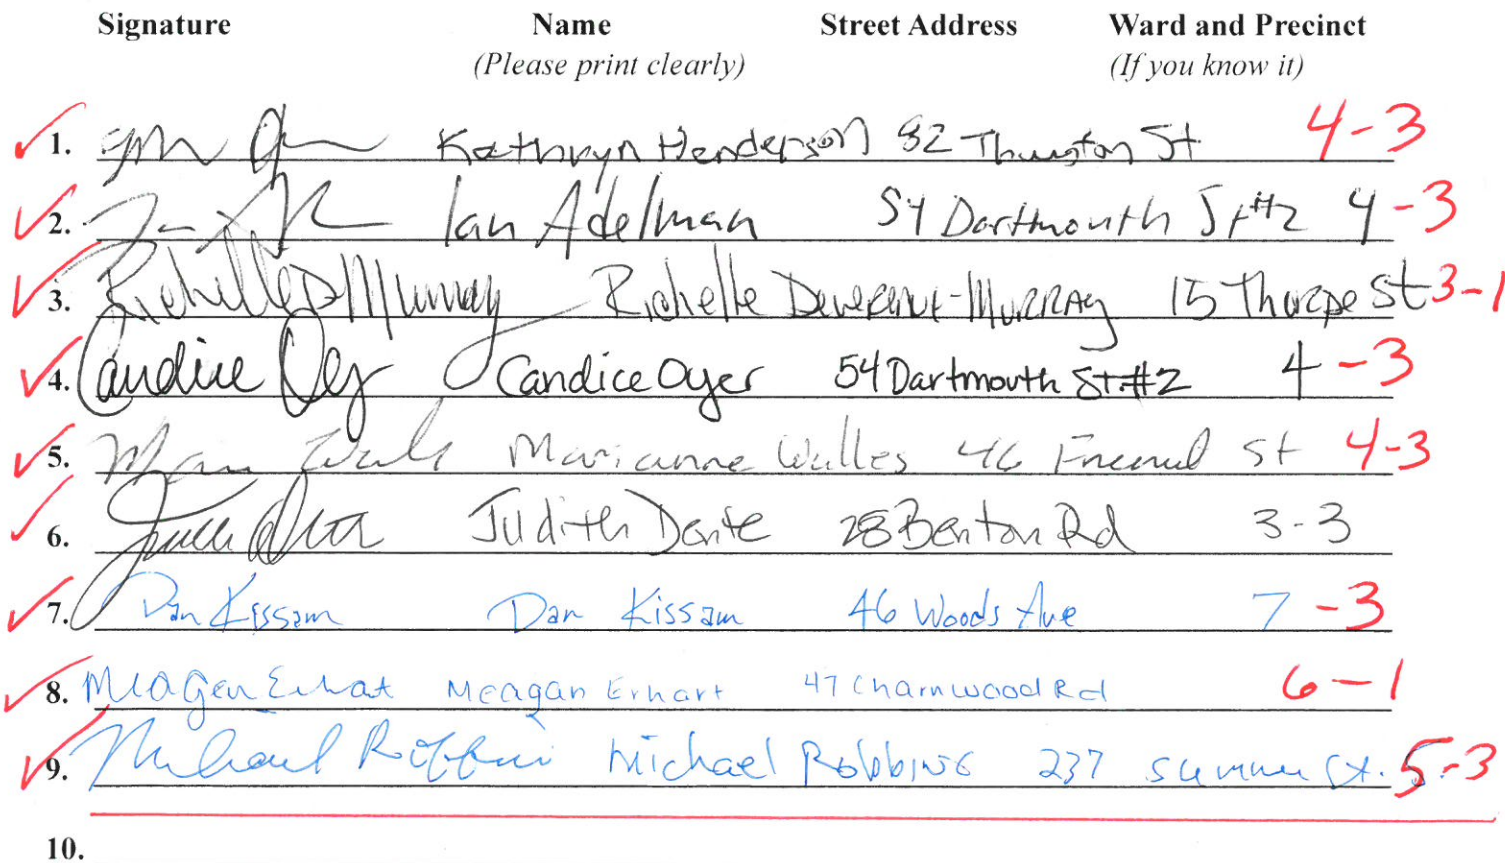 Signature Name Street Address Ward and Precinct
(Please print clearly) (If you know it)
1. Kathryn Henderson 82 Thurston St 4-3
2. Ian Adelman 54 Dartmouth St #2 4-3
3. Richelle D Murray Richelle Devereux-Murray 15 Thorpe St 3-1
4. Candice Oyer Candice Oyer 54 Dartmouth St. #2 4-3
5. Marianne Walles 46 St 4-3
6. Judith Dente 28 Benton Rd 3-3
7. Dan Kissam Dan Kissam 46 Woods Ave 7-3
8. Meagan Erhart Meagan Erhart 47 Charnwood Rd 6-1
9. Michael Robbins Michael Robbins 237 Summer St. 5-3
10.